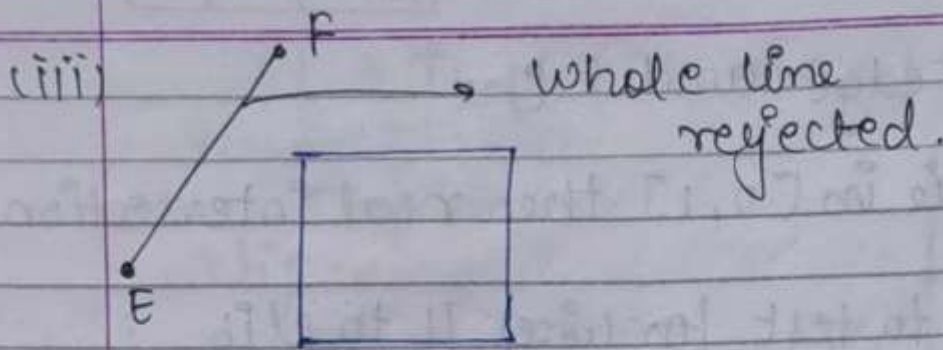 (iii)
F
Whole line
rejected.
E